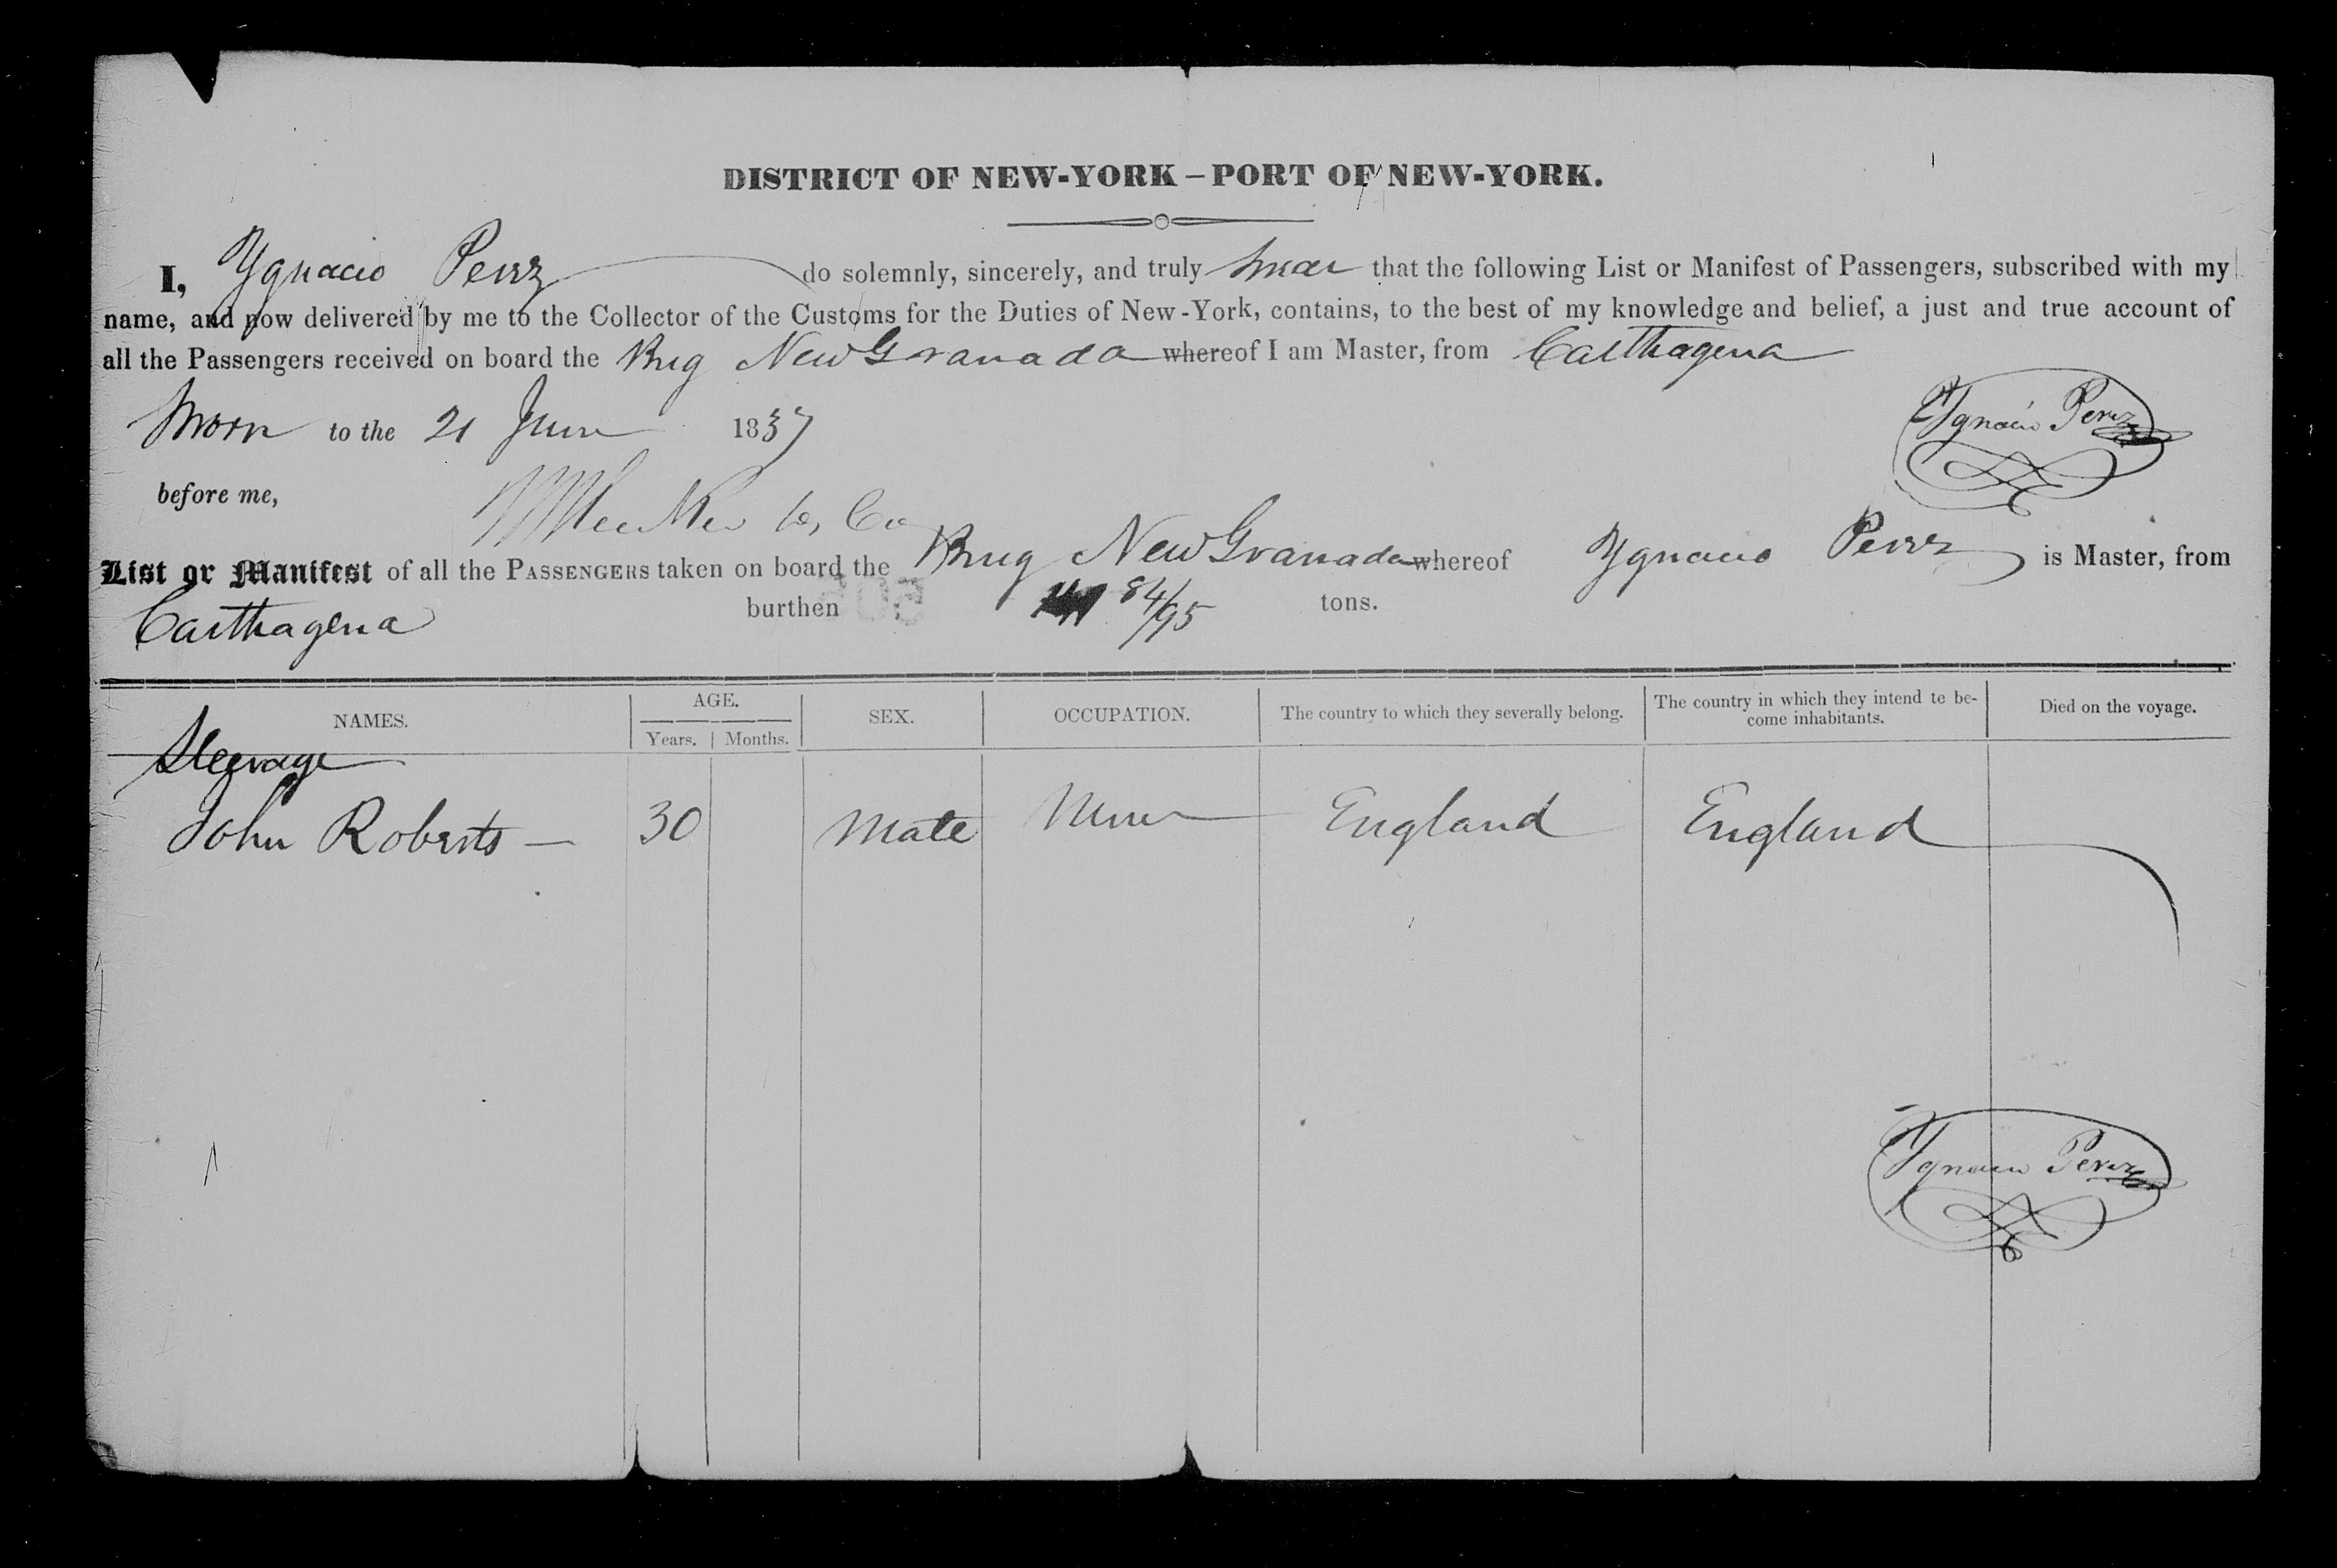 DISTRICT OF NEW-YORK – PORT OF NEW-YORK.
I, Ygnacio Perez do solemnly, sincerely, and truly swear that the following List or Manifest of Passengers, subscribed with my
name, and now delivered by me to the Collector of the Customs for the Duties of New-York, contains, to the best of my knowledge and belief, a just and true account of
all the Passengers received on board the Brig New Granada whereof I am Master, from Carthagena
Sworn to the 21 June 1837
Ygnacio Perez
before me,
List or Manifest of all the PASSENGERS taken on board the Brig New Granada whereof Ygnacio Perez is Master, from
Carthagena burthen 84/95 tons.
NAMES. AGE. Years. Months. SEX. OCCUPATION. The country to which they severally belong. The country in which they intend te become inhabitants. Died on the voyage.
Steerage
John Roberts — 30 Male Miner England England
Ygnacio Perez